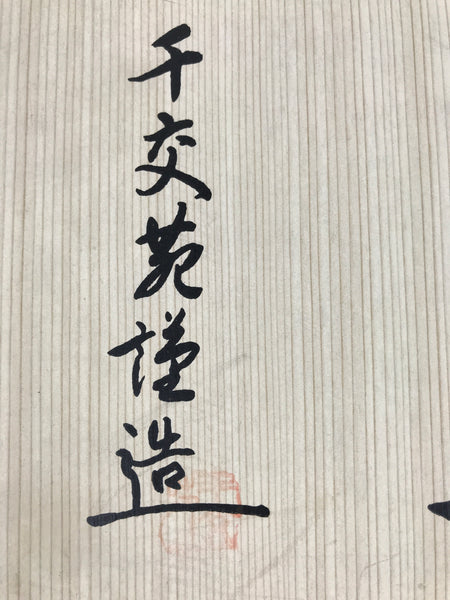 千交苑謹造